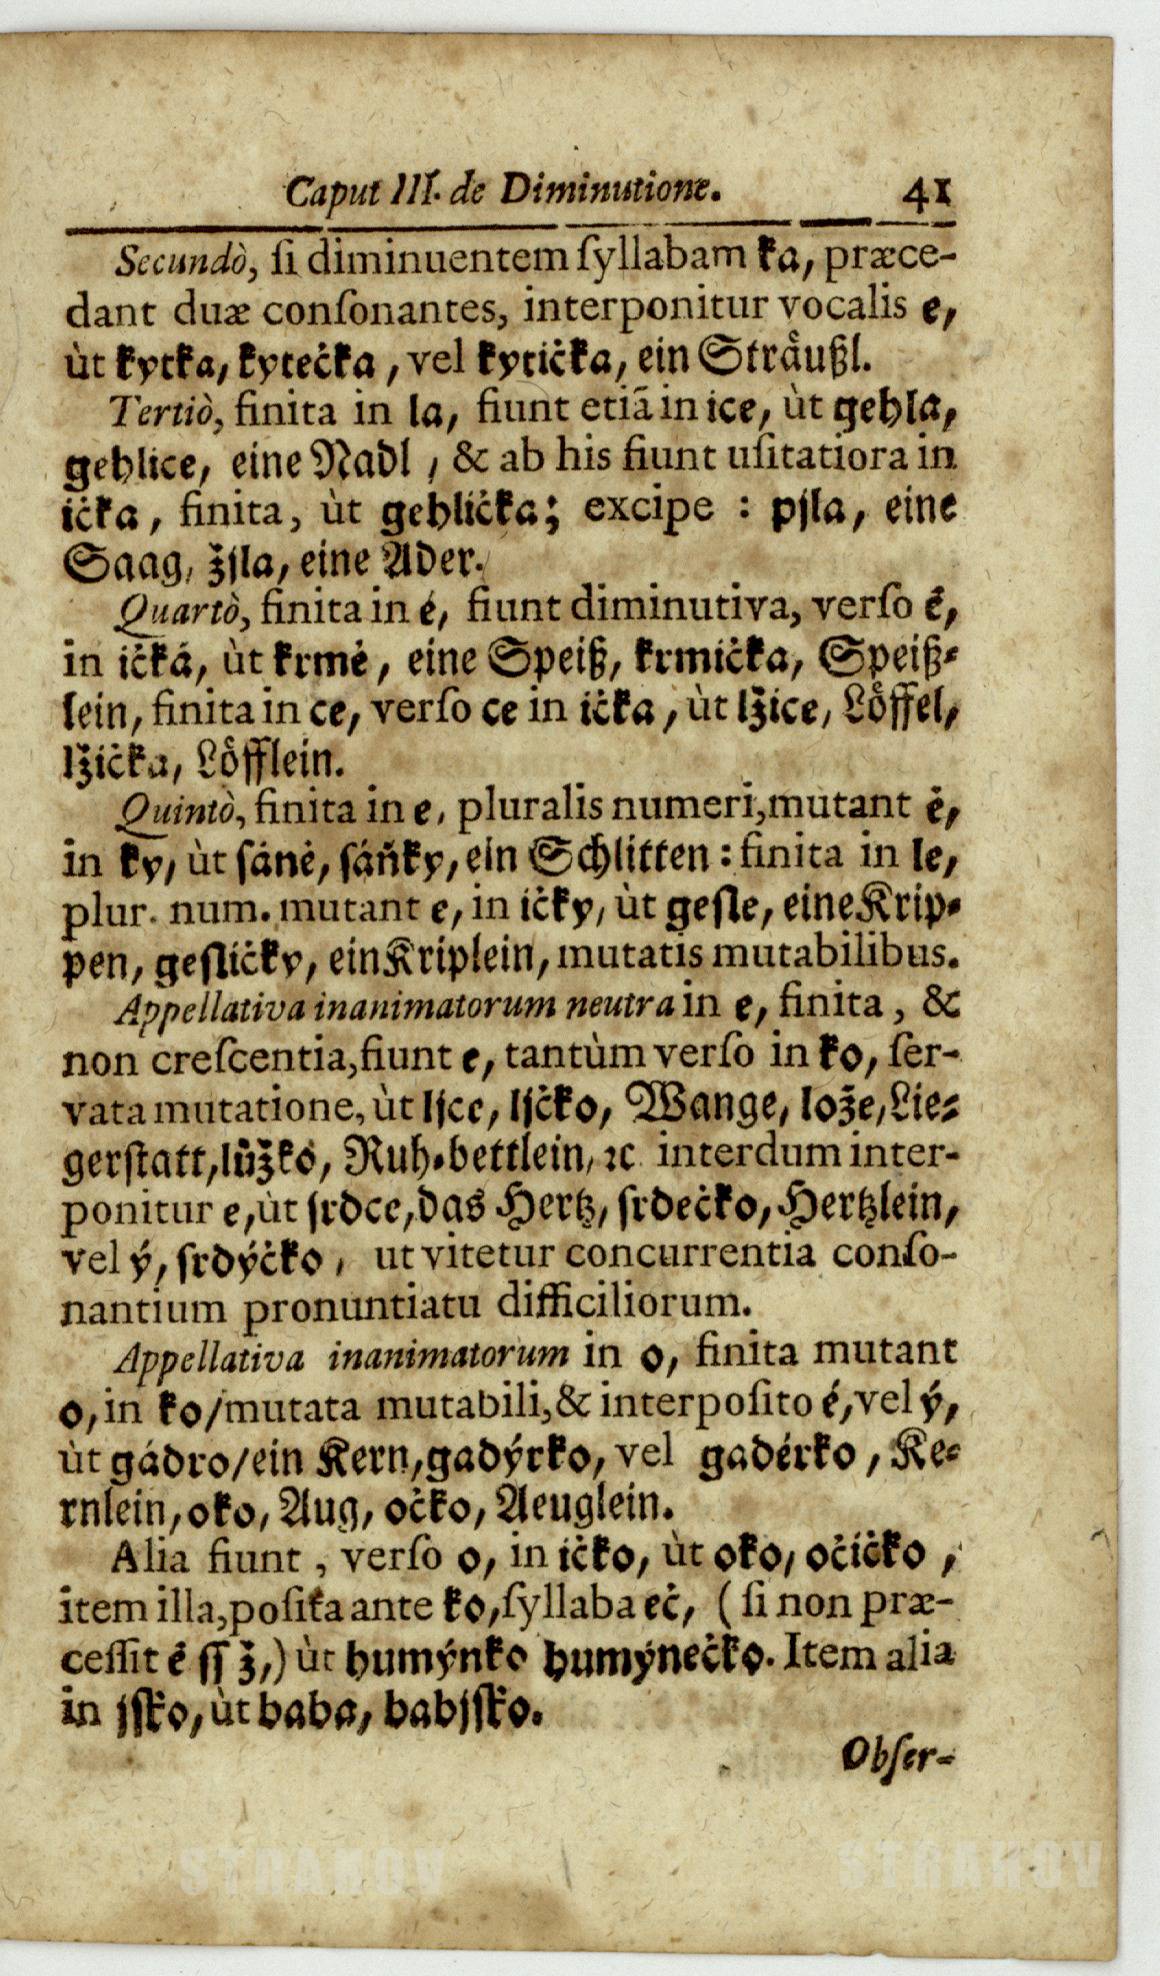 Caput III. de Diminutione. 41
Secundò, ſi diminuentem ſyllabam ka, præce-
dant duæ conſonantes, interponitur vocalis e,
ùt kytka, kytečka, vel kytička, ein Sträußl.
Tertiò, finita in la, fiunt etiã in ice, ùt gehla,
gehlice, eine Nadl, & ab his fiunt uſitatiora in
ička, finita, ùt gehlička; excipe: pjla, eine
Saag, žjla, eine Ader.
Quartò, finita in é, fiunt diminutiva, verſo ě,
in ičká, ùt krmě, eine Speiß, krmička, Speiß-
lein, finita in ce, verſo ce in ička, ùt lžice, Löffel,
lžička, Löfflein.
Quintò, finita in e, pluralis numeri, mutant ě,
in ky, ùt ſáně, ſáňky, ein Schlitten: finita in le,
plur. num. mutant e, in ičky, ùt geſle, eine Krip-
pen, geſličky, ein Kriplein, mutatis mutabilibus.
Appellativa inanimatorum neutra in e, finita, &
non creſcentia, fiunt e, tantùm verſo in ko, ſer-
vata mutatione, ùt ljce, ljčko, Wange, lože, Lie-
gerſtatt, lůžko, Ruh-bettlein, ꝛc interdum inter-
ponitur e, ùt ſrdce, das Hertz, ſrdečko, Hertzlein,
vel ý, ſrdýčko, ut vitetur concurrentia conſo-
nantium pronuntiatu difficiliorum.
Appellativa inanimatorum in o, finita mutant
o, in ko/ mutata mutabili, & interpoſito é, vel ý,
ùt gádro/ ein Kern, gadýrko, vel gadérko, Ke-
rnlein, oko, Aug, očko, Aeuglein.
Alia fiunt, verſo o, in ičko, ùt oko, očičko,
item illa, poſita ante ko, ſyllaba eč, (ſi non præ-
ceſſit č ſſ ž,) ùt humýnko humýnečko. Item alia
in jſko, ùt baba, babjſko.
Obſer-
STRAHOV STRAHOV